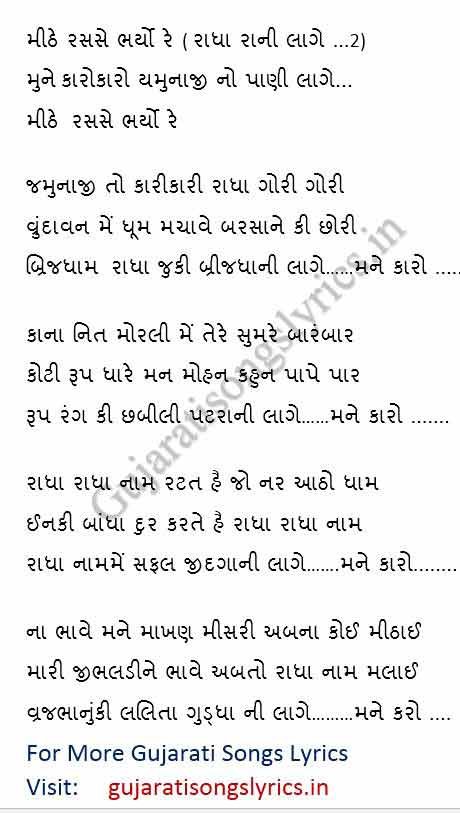 મીઠે રસસે ભર્યો રે ( રાધા રાની લાગે ...2)
મુને કારોકારો યમુનાજી નો પાણી લાગે...
મીઠે રસસે ભર્યો રે
જમુનાજી તો કારીકારી રાધા ગોરી ગોરી
વ્રુંદાવન મેં ધૂમ મચાવે બરસાને કી છોરી
બ્રિજધામ રાધા જુકી બ્રીજધાની લાગે......મને કારો .....
કાના નિત મોરલી મેં તેરે સુમરે બારંબાર
કોટી રૂપ ધારે મન મોહન કહુન પાપે પાર
રૂપ રંગ કી છબીલી પટરાની લાગે......મને કારો .......
રાધા રાધા નામ રટત હૈ જો નર આઠો ધામ
ઈનકી બાંધા દુર કરતે હૈ રાધા રાધા નામ
રાધા નામમેં સફલ જીદગાની લાગે.......મને કારો........
ના ભાવે મને માખણ મીસરી અબના કોઈ મીઠાઈ
મારી જીભલડીને ભાવે અબતો રાધા નામ મલાઈ
વ્રજભાનુંકી લલિતા ગુડ્ધા ની લાગે.........મને કરો ....
For More Gujarati Songs Lyrics
Visit: gujaratisongslyrics.in
Gujaratisongslyrics.in